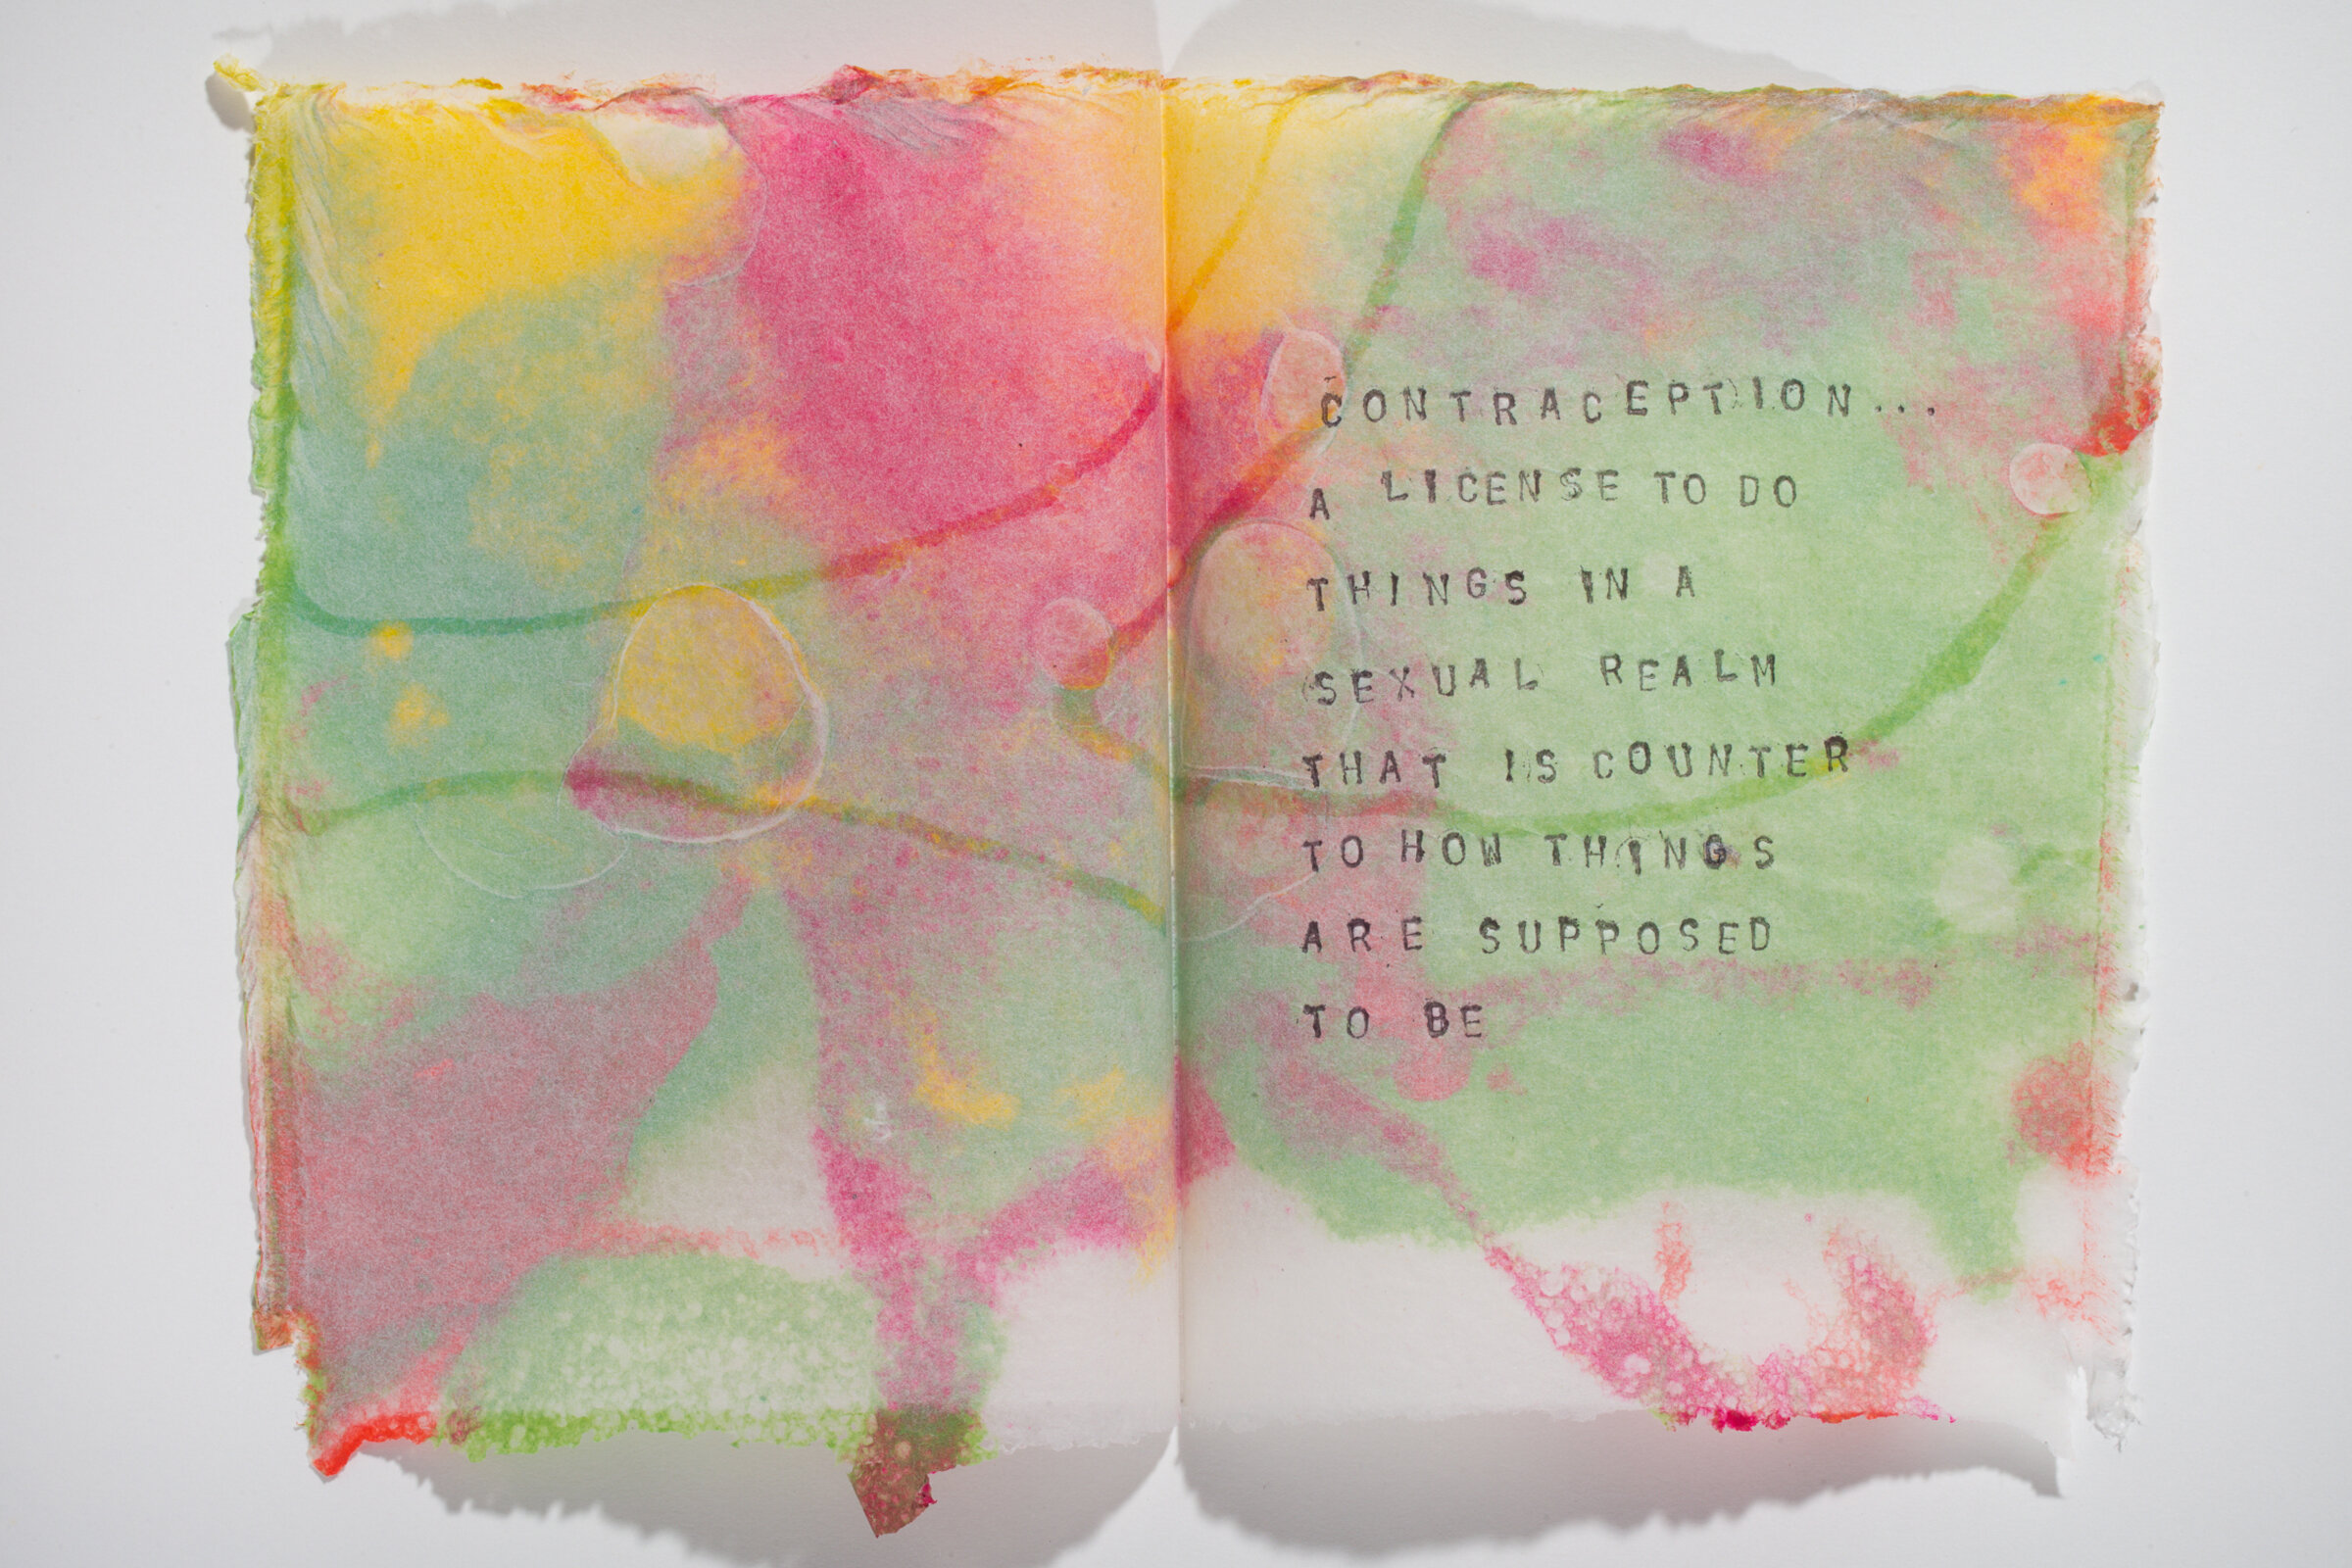 CONTRACEPTION...
A LICENSE TO DO
THINGS IN A
SEXUAL REALM
THAT IS COUNTER
TO HOW THINGS
ARE SUPPOSED
TO BE